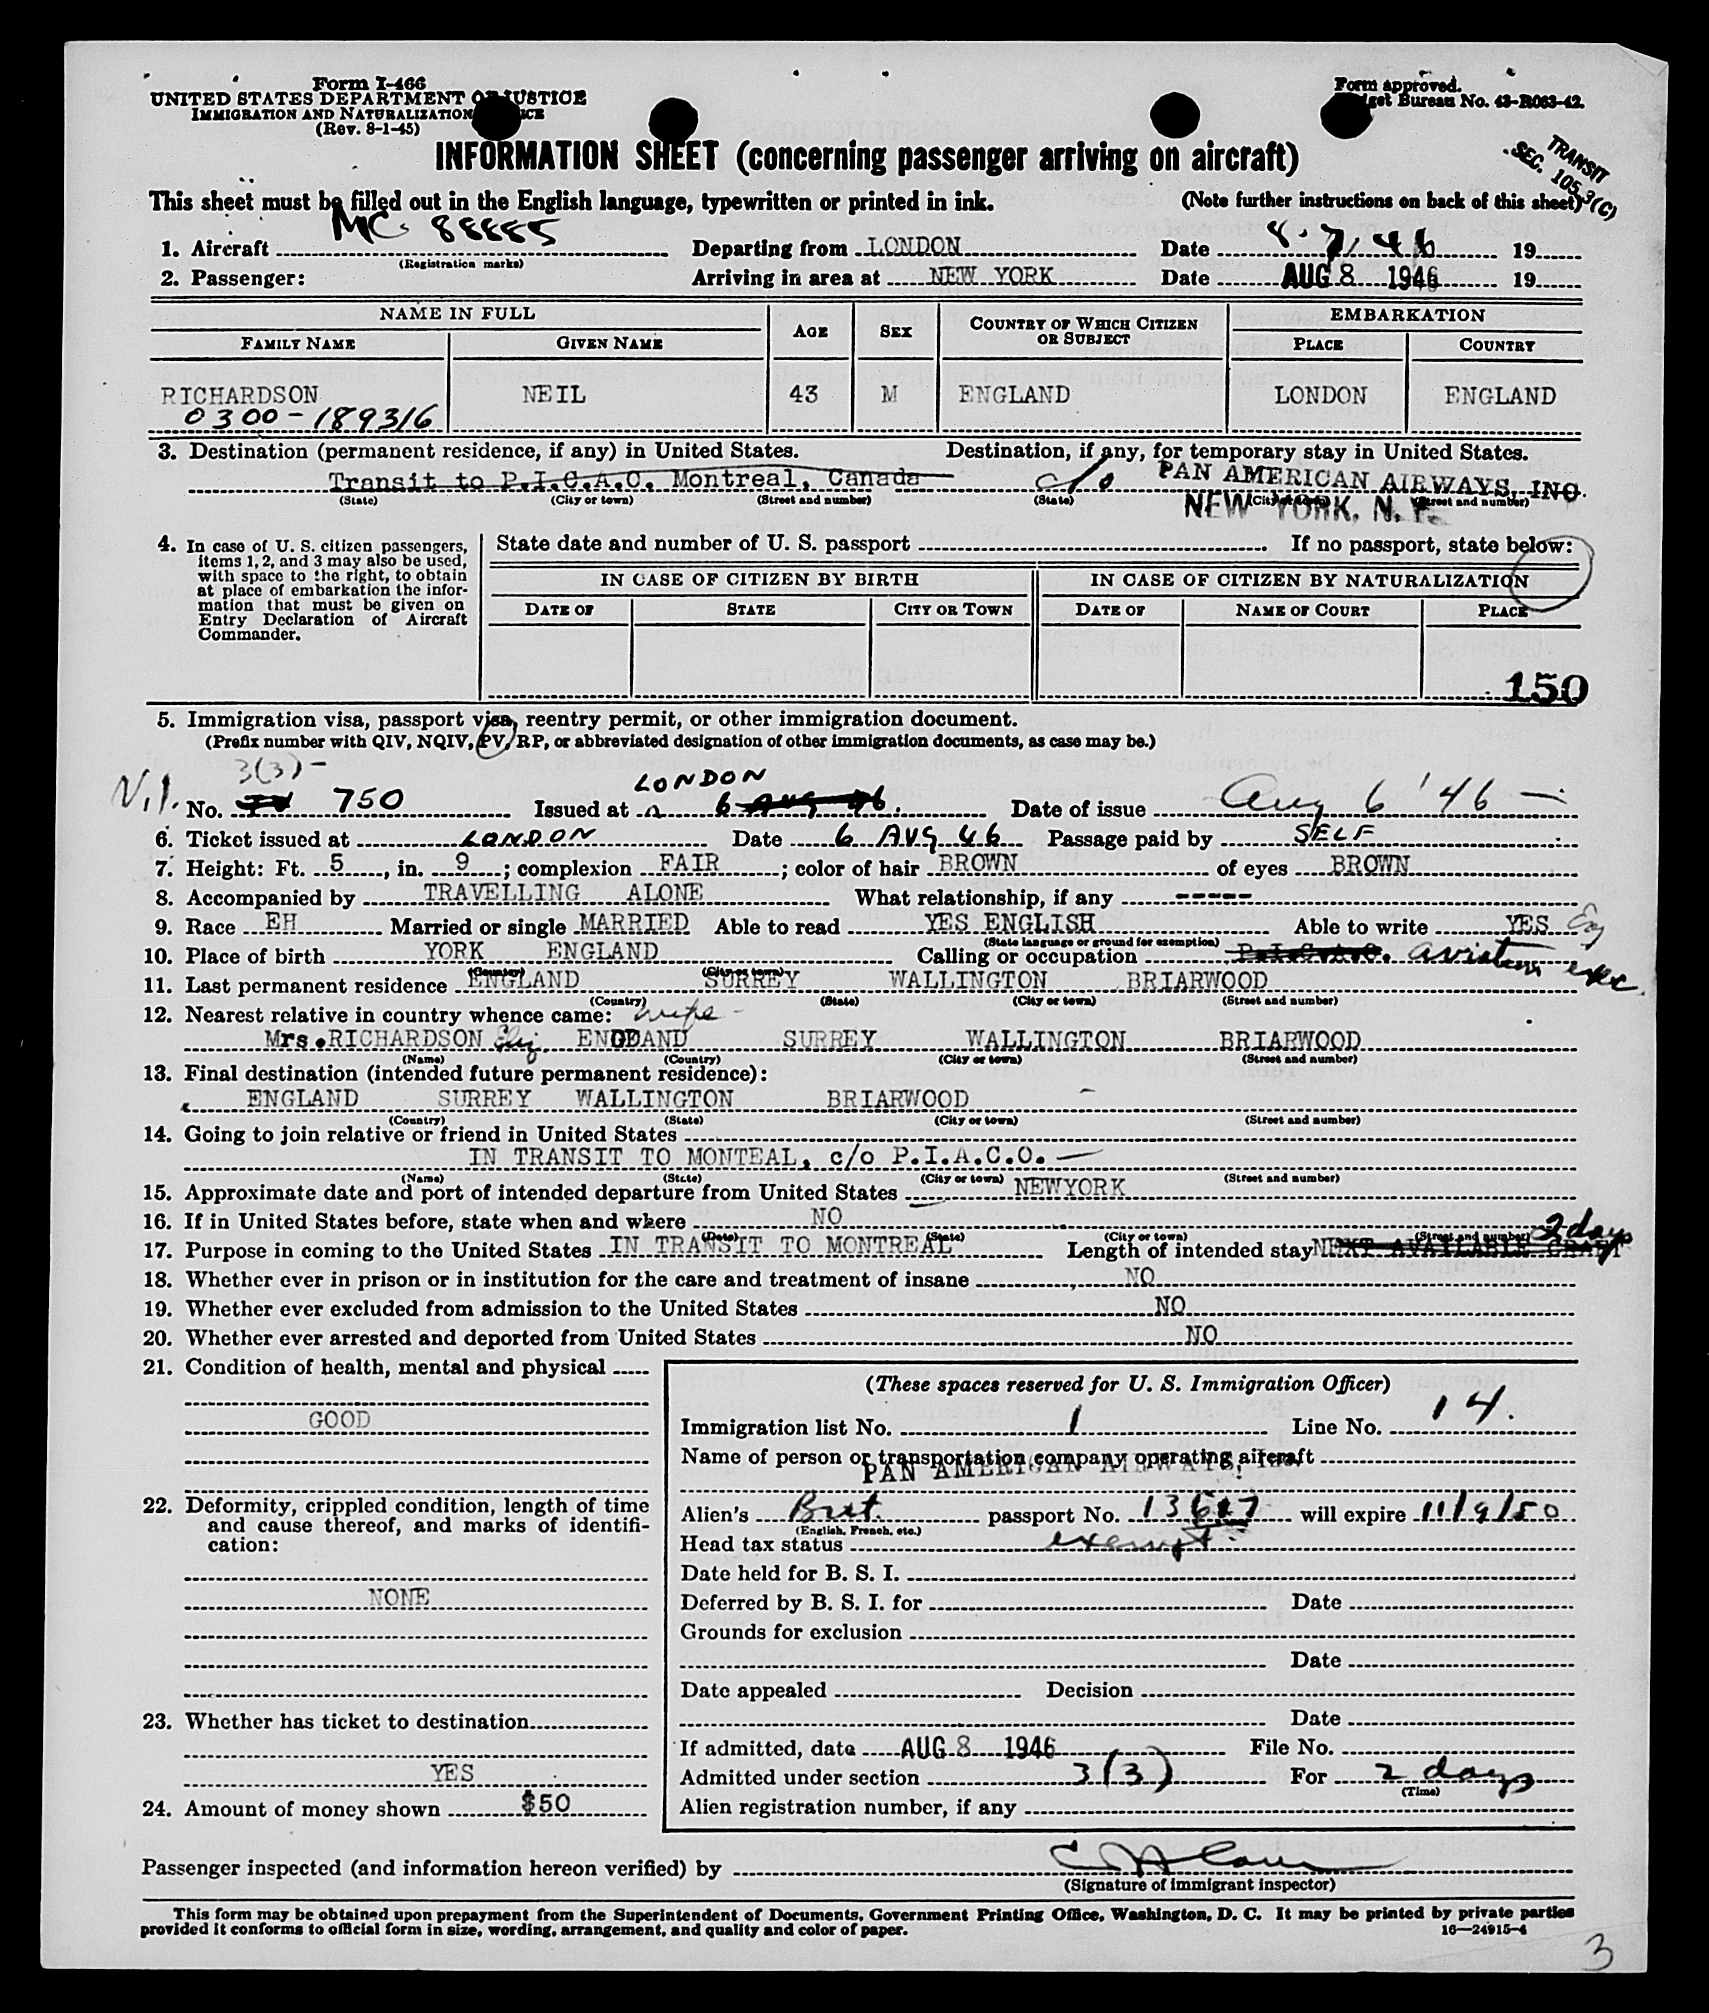 Form I-466
UNITED STATES DEPARTMENT OF JUSTICE
IMMIGRATION AND NATURALIZATION SERVICE
(Rev. 8-1-45)
Form approved.
Budget Bureau No. 43-R063-42.
TRANSIT
SEC. 105.3(C)
INFORMATION SHEET (concerning passenger arriving on aircraft)
This sheet must be filled out in the English language, typewritten or printed in ink. (Note further instructions on back of this sheet)
1. Aircraft MC 88885 Departing from LONDON Date 8.7/46 19
(Registration marks)
2. Passenger: Arriving in area at NEW YORK Date AUG 8 1946 19
NAME IN FULL AGE SEX COUNTRY OF WHICH CITIZEN OR SUBJECT EMBARKATION
FAMILY NAME GIVEN NAME PLACE COUNTRY
RICHARDSON NEIL 43 M ENGLAND LONDON ENGLAND
0300-189316
3. Destination (permanent residence, if any) in United States. Destination, if any, for temporary stay in United States.
Transit to P.I.C.A.O. Montreal, Canada c/o PAN AMERICAN AIRWAYS, INC.
(State) (City or town) (Street and number) (State) (City or town) (Street and number)
NEW YORK, N. Y.
4. In case of U. S. citizen passengers, items 1, 2, and 3 may also be used, with space to the right, to obtain at place of embarkation the information that must be given on Entry Declaration of Aircraft Commander.
State date and number of U. S. passport If no passport, state below:
IN CASE OF CITIZEN BY BIRTH IN CASE OF CITIZEN BY NATURALIZATION
DATE OF STATE CITY OR TOWN DATE OF NAME OF COURT PLACE
150
5. Immigration visa, passport visa, reentry permit, or other immigration document.
(Prefix number with QIV, NQIV, PV, RP, or abbreviated designation of other immigration documents, as case may be.)
3(3)- LONDON
N.I. No. 750 Issued at 6 AUG 46. Date of issue Aug 6 '46 -
6. Ticket issued at LONDON Date 6 AUG 46 Passage paid by SELF
7. Height: Ft. 5, in. 9; complexion FAIR; color of hair BROWN of eyes BROWN
8. Accompanied by TRAVELLING ALONE What relationship, if any -----
9. Race EH Married or single MARRIED Able to read YES ENGLISH Able to write YES Eng
(State language or ground for exemption)
10. Place of birth YORK ENGLAND Calling or occupation P.I.C.A.O. aviation exec.
(Country) (City or town)
11. Last permanent residence ENGLAND SURREY WALLINGTON BRIARWOOD
(Country) (State) (City or town) (Street and number)
12. Nearest relative in country whence came: wife -
Mrs. RICHARDSON ENGLAND SURREY WALLINGTON BRIARWOOD
(Name) (Country) (City or town) (Street and number)
13. Final destination (intended future permanent residence):
ENGLAND SURREY WALLINGTON BRIARWOOD -
(Country) (State) (City or town) (Street and number)
14. Going to join relative or friend in United States
IN TRANSIT TO MONTEAL, c/o P.I.A.C.O. -
(Name) (State) (City or town) (Street and number)
15. Approximate date and port of intended departure from United States NEWYORK
16. If in United States before, state when and where NO
(Date) (State) (City or town) (Street and number)
17. Purpose in coming to the United States IN TRANSIT TO MONTREAL Length of intended stay NEXT AVAILABLE CRAFT 2 days
18. Whether ever in prison or in institution for the care and treatment of insane NO
19. Whether ever excluded from admission to the United States NO
20. Whether ever arrested and deported from United States NO
21. Condition of health, mental and physical
GOOD
22. Deformity, crippled condition, length of time and cause thereof, and marks of identification:
NONE
23. Whether has ticket to destination
YES
24. Amount of money shown $50
(These spaces reserved for U. S. Immigration Officer)
Immigration list No. 1 Line No. 14.
Name of person or transportation company operating aircraft
PAN AMERICAN AIRWAYS, Inc.
Alien's Brit. passport No. will expire 11/9/50
(English, French, etc.)
Head tax status exempt
Date held for B. S. I.
Deferred by B. S. I. for Date
Grounds for exclusion
Date
Date appealed Decision
Date
If admitted, date AUG 8 1946 File No.
Admitted under section 3(3) For 2 days
(Time)
Alien registration number, if any
Passenger inspected (and information hereon verified) by
(Signature of immigrant inspector)
This form may be obtained upon prepayment from the Superintendent of Documents, Government Printing Office, Washington, D. C. It may be printed by private parties
provided it conforms to official form in size, wording, arrangement, and quality and color of paper. 16—24915-4
3